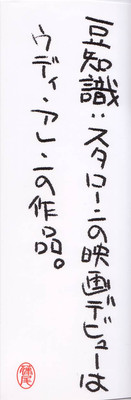 豆知識:スタローンの映画デビューは
ウディ・アレンの作品。